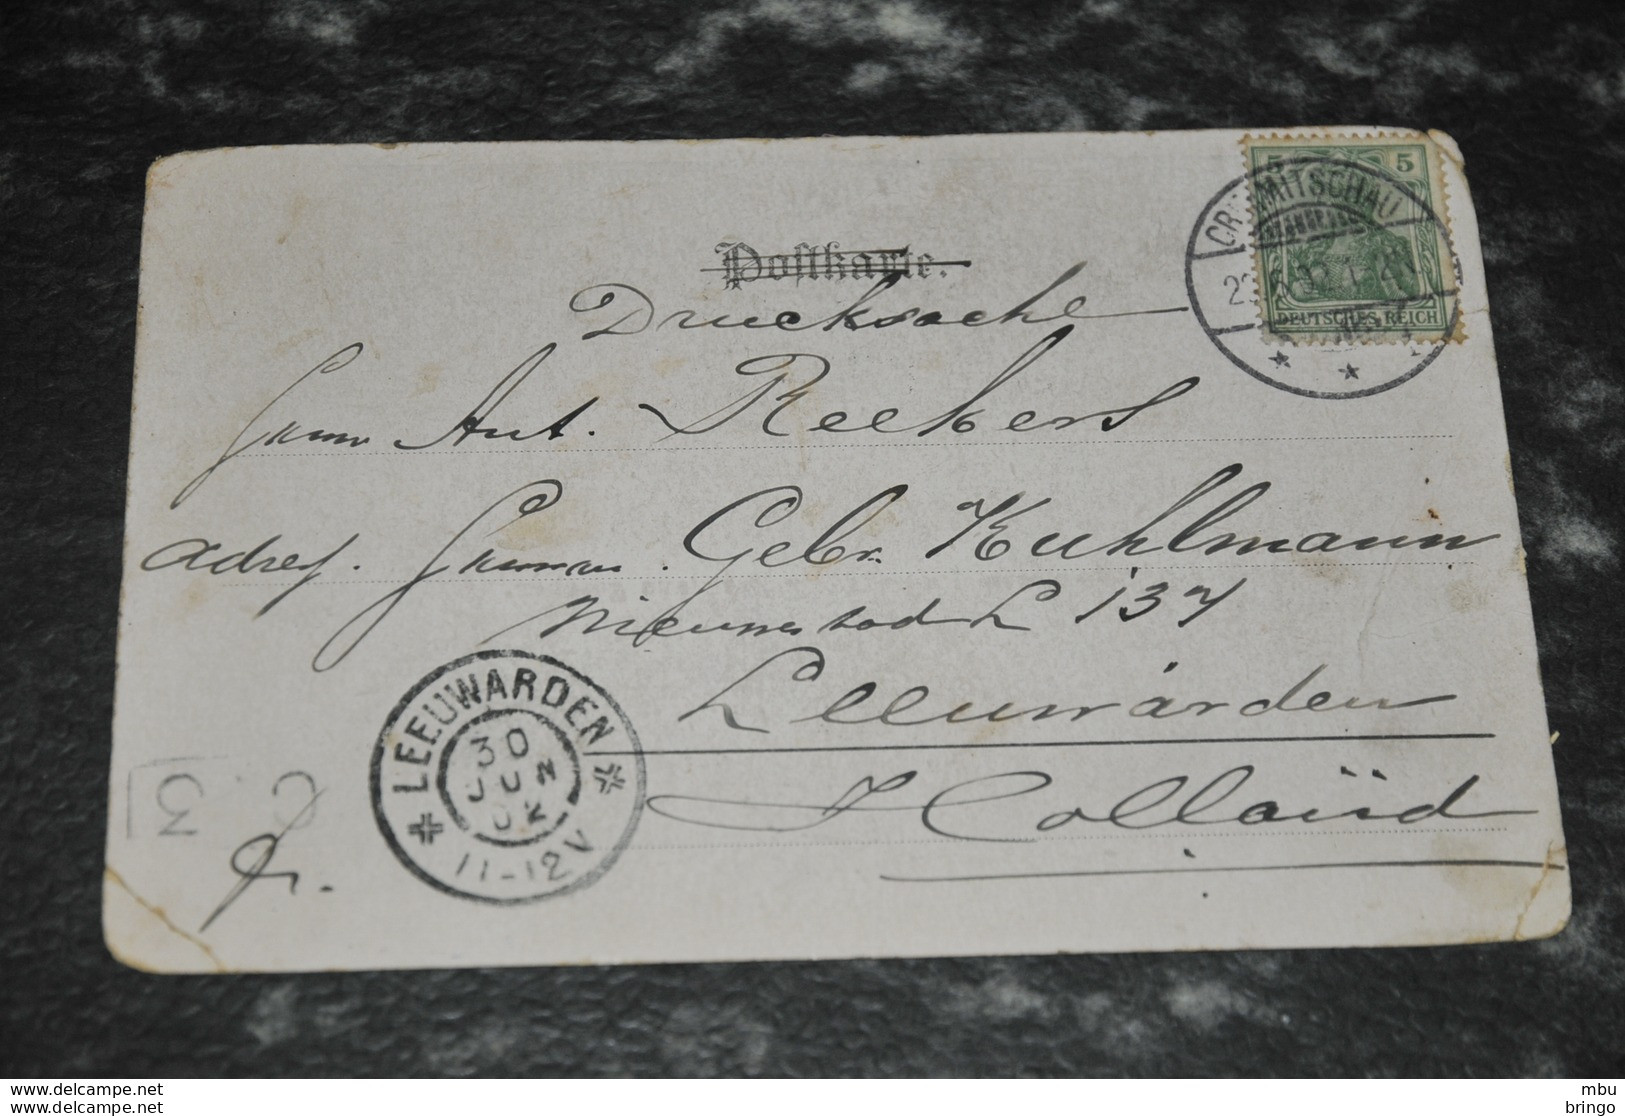 5 5
CRIMMITSCHAU
DEUTSCHES REICH
Postkarte.
Drucksache
Herrn Ant. Reekers
adress. Herren. Gebr. Kuhlmann
Nieuwestad L 137
Leeuwarden
Holland
LEEUWARDEN
30
JUN
02
11-12V
delcampe.net
delcampe.net
mbu
bringo